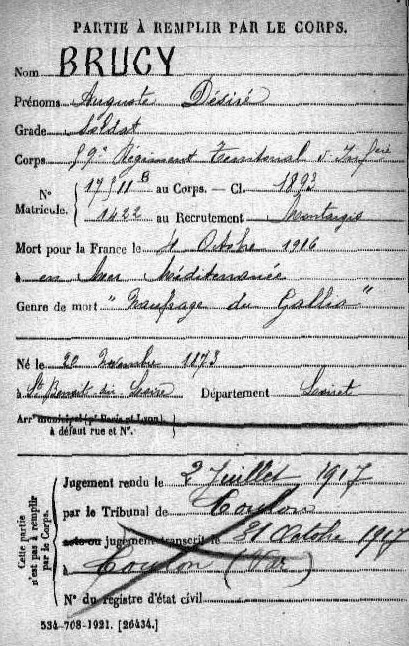 PARTIE À REMPLIR PAR LE CORPS.
Nom BRUCY
Prénoms Auguste Désiré
Grade Soldat
Corps 59e Régiment Territorial d'Infrie
N° Matricule. { 17511 B au Corps. — Cl. 1893
1422 au Recrutement Montargis
Mort pour la France le 4 Octobre 1916
à en Mer Méditerranée
Genre de mort "Naufrage du Gallia"
Né le 20 Novembre 1873
à St Benoit sur Loire Département Loiret
Arr municipal (pr Paris et Lyon),
à défaut rue et N°.
Cette partie n'est pas à remplir par le Corps.
Jugement rendu le 2 Juillet 1917
par le Tribunal de Toulon
acte ou jugement transcrit le 31 Octobre 1917
à Toulon (Var)
N° du registre d'état civil
534-708-1921. [26434.]